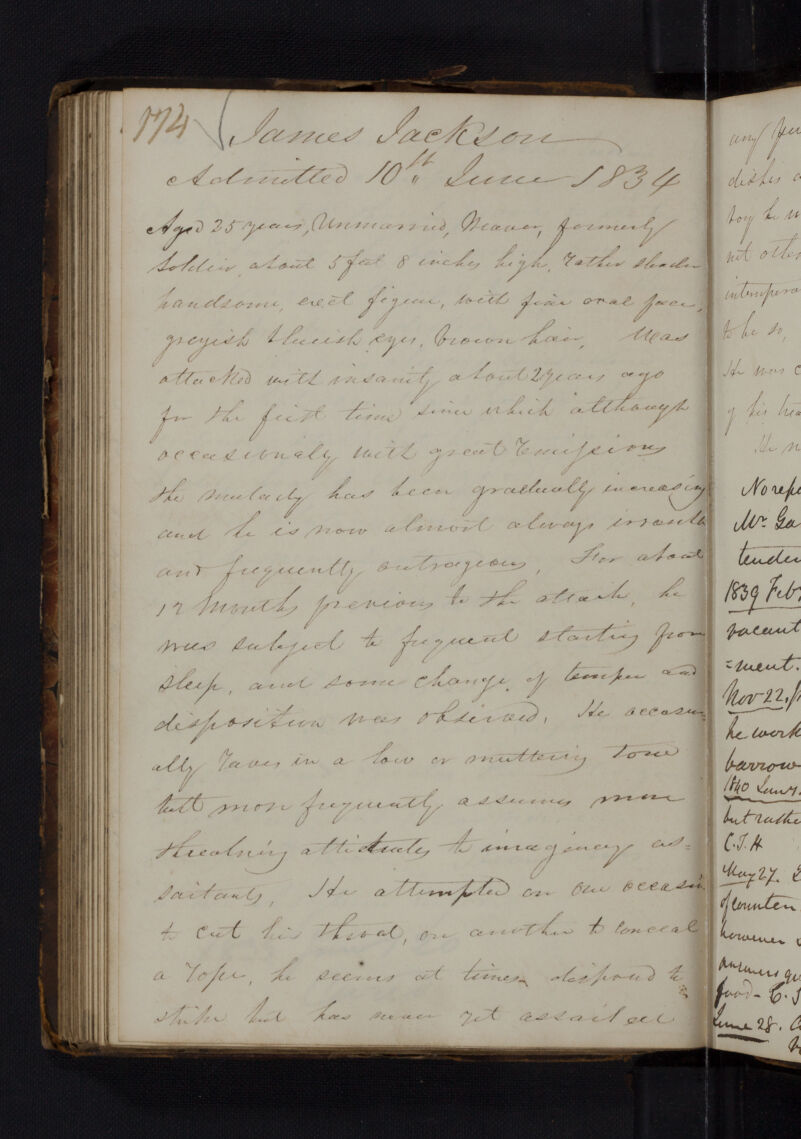 174
James Jackson
Admitted 10th June 1834
Aged 25 years, Unmarried, Weaver, formerly
Soldier, about 5 feet 8 inches high, rather slender
handsome, erect figure, with fine oval face,
greyish blueish eyes, brown hair, Was
attacked with insanity about 2 years ago
for the first time since which although
occasionaly with great remissions
the malady has been gradually increasing
and he is now almost always
and frequently outrageous, For about
12 Months previous to the attack, he
was subject to frequent starting from
sleep, and some change of temper and
disposition was observed, He occasion=
ally raves in a low or muttering tone
but more frequently assumes
attitudes to imaginary as=
sailants, He attempted on one occasion
to cut his throat, on another to conceal
a rope, he seems at times disposed to
strike but has never yet assailed
any
dishes
boy he
not
to be so,
He was
of his
He
No
Mr. Ga
1839 Feb
vacant
=ment.
Nov 22,
he work
barrow
1840
but rathe
C.J.H
May 27.
of counten
however
answers
food - C.J
June 28.